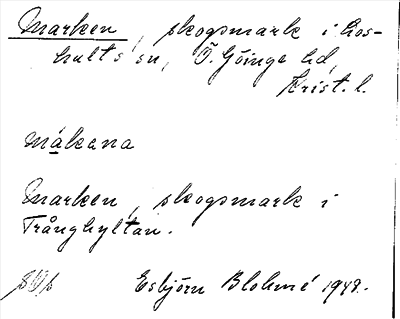 Marken, skogsmark i Los-
hults sn, Ö. Göinge hd,
Krist. l.
måkana
Marken, skogsmark i
Trånghyltan.
Esbjörn Blohmé 1948.